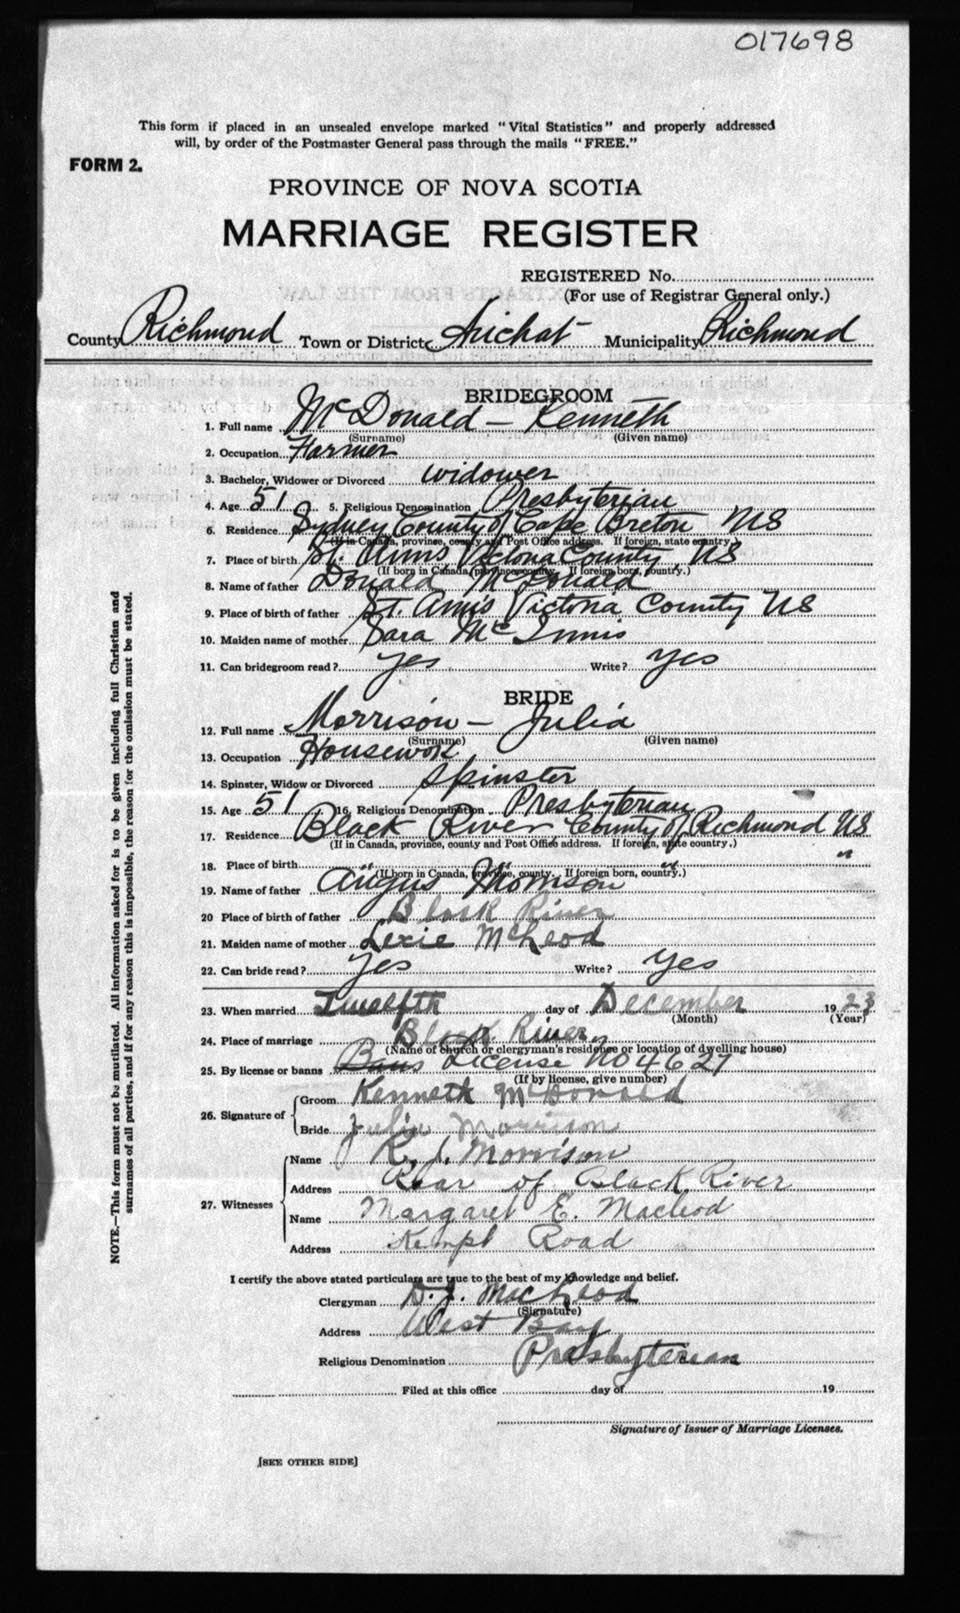 017698
This form if placed in an unsealed envelope marked "Vital Statistics" and properly addressed
will, by order of the Postmaster General pass through the mails "FREE."
FORM 2.
PROVINCE OF NOVA SCOTIA
MARRIAGE REGISTER
REGISTERED No.
(For use of Registrar General only.)
County Richmond Town or District Arichat Municipality Richmond
BRIDEGROOM
1. Full name McDonald - Kenneth
(Surname) (Given name)
2. Occupation Farmer
3. Bachelor, Widower or Divorced widower
4. Age 51 5. Religious Denomination Presbyterian
6. Residence Sydney County of Cape Breton NS
(If in Canada, province, county and Post Office address. If foreign, state country.)
7. Place of birth St. Anns Victoria County NS
(If born in Canada, province, county. If foreign born, country.)
8. Name of father Donald McDonald
9. Place of birth of father St. Anns Victoria County NS
10. Maiden name of mother Sara McInnis
11. Can bridegroom read? yes Write? yes
BRIDE
12. Full name Morrison - Julia
(Surname) (Given name)
13. Occupation Housework
14. Spinster, Widow or Divorced Spinster
15. Age 51 16. Religious Denomination Presbyterian
17. Residence Black River, County of Richmond NS
(If in Canada, province, county and Post Office address. If foreign, state country.)
18. Place of birth " " "
(If born in Canada, province, county. If foreign born, country.)
19. Name of father Angus Morrison
20 Place of birth of father Black River
21. Maiden name of mother Lexie McLeod
22. Can bride read? yes Write? yes
23. When married Twelfth day of December 1923
(Month) (Year)
24. Place of marriage Black River
(Name of church or clergyman's residence or location of dwelling house)
25. By license or banns Bans License No 4627
(If by license, give number)
26. Signature of Groom Kenneth McDonald
Bride Julia Morrison
27. Witnesses Name K. J. Morrison
Address Rear of Black River
Name Margaret E. Macleod
Address Kempt Road
I certify the above stated particulars are true to the best of my knowledge and belief.
Clergyman D. J. MacLeod
(Signature)
Address West Bay
Religious Denomination Presbyterian
Filed at this office day of 19
Signature of Issuer of Marriage Licenses.
[SEE OTHER SIDE]
NOTE.—This form must not be mutilated. All information asked for is to be given including full Christian and
surnames of all parties, and if for any reason this is impossible, the reason for the omission must be stated.